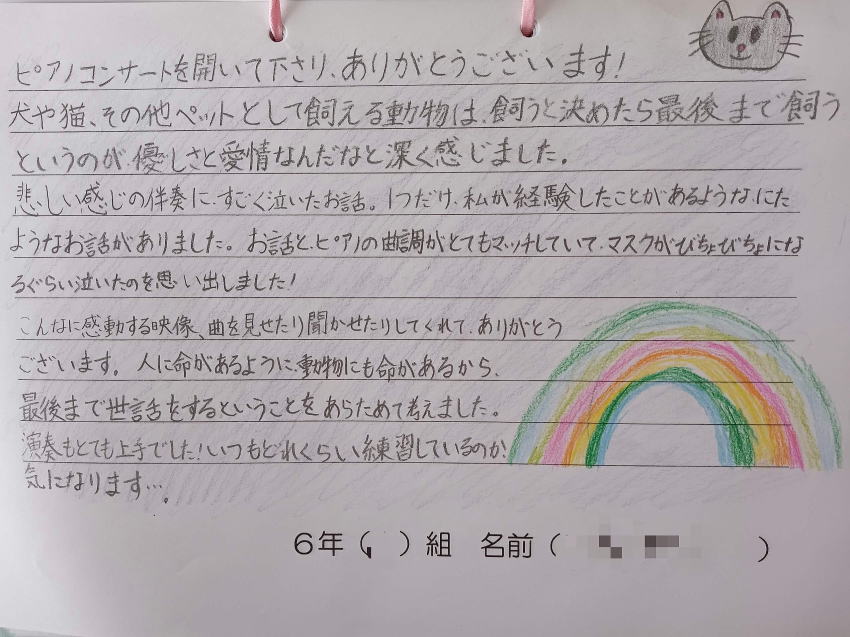 ピアノコンサートを開いて下さり、ありがとうございます!
犬や猫、その他ペットとして飼える動物は、飼うと決めたら最後まで飼う
というのが、優しさと愛情なんだなと深く感じました。
悲しい感じの伴奏に、すごく泣いたお話。1つだけ、私が経験したことがあるような、にた
ようなお話がありました。お話と、ピアノの曲調がとてもマッチしていて、マスクがびちょびちょにな
るぐらい泣いたのを思い出しました!
こんなに感動する映像、曲を見せたり聞かせたりしてくれて、ありがとう
ございます。人に命があるように、動物にも命があるから、
最後まで世話をするということをあらためて考えました。
演奏もとても上手でした!いつもどれくらい練習しているのか
気になります…。
6年( )組 名前( )